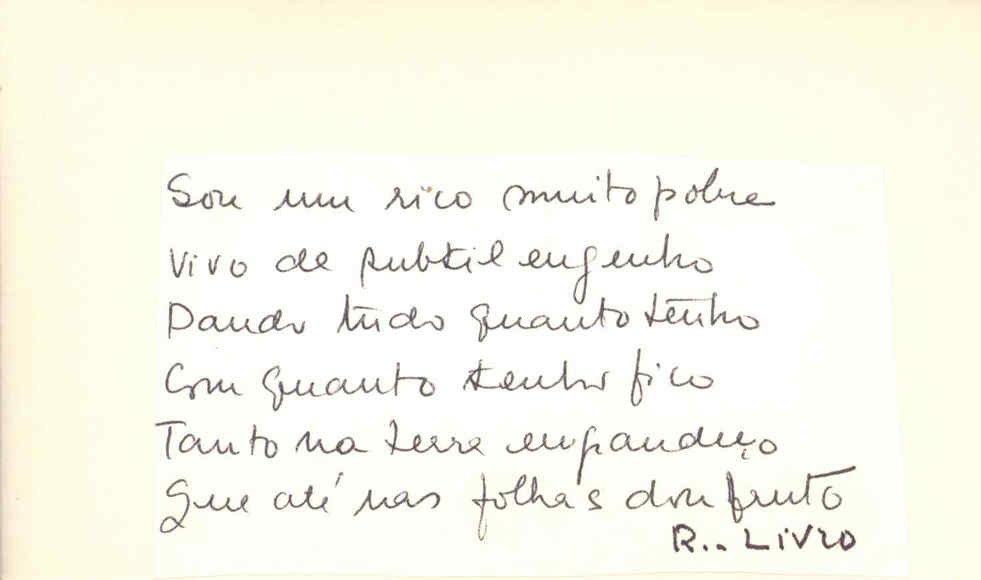 Sou um rico muito pobre
Vivo de subtil engenho
Dando tudo quanto tenho
Com quanto tenho fico
Tanto na terra engrandeço
Que até nas folhas dou fruto
R.. LIVRO